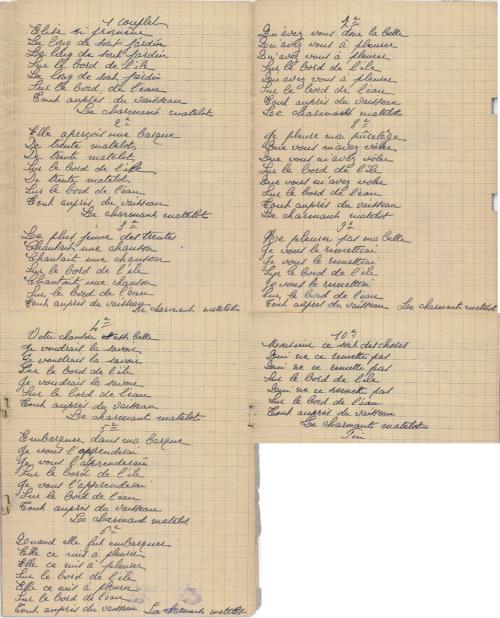 1 couplet
Elise si promène
Le long de sont jardin
Le long de sont jardin
Sur le bord de l'île
Le long de sont jardin
Sur le bord de l'eau
Tout auprès du vaisseau
Le charmant matelot
2e
Elle aperçois une barque
De trente matelot
De trente matelot
Sur le bord de l'île
De trente matelot
Sur le bord de l'eau
Tout auprès du vaisseau
Le charmant matelot
3e
Le plus jeune des trentes
Chantait une chanson
Chantait une chanson
Sur le bord de l'île
Chantait une chanson
Sur le bord de l'eau
Tout auprès du vaisseau
Le charmant matelot
4e
Votre chanson est belle
Je voudrais la savoir
Je voudrais la savoir
Sur le bord de l'île
Je voudrais la savoir
Sur le bord de l'eau
Tout auprès du vaisseau
Le charmant matelot
5e
Embarquer dans ma barque
Je vous l'apprenderai
Je vous l'apprenderai
Sur le bord de l'île
Je vous l'apprenderai
Sur le bord de l'eau
Tout auprès du vaisseau
Le charmant matelot
6e
Quand elle fut embarquer
Elle ce mis à pleurer
Elle ce mis à pleurer
Sur le bord de l'île
Elle ce mis à pleurer
Sur le bord de l'eau
Tout auprès du vaisseau Le charmant matelot
Qu'avez vous donc la belle
Qu'avez vous à pleurer
Qu'avez vous à pleurer
Sur le bord de l'île
Qu'avez vous à pleurer
Sur le bord de l'eau
Tout auprès du vaisseau
Le charmant matelot
8e
Je pleure mon pucelage
Que vous m'avez voler
Que vous m'avez voler
Sur le bord de l'île
Que vous m'avez voler
Sur le bord de l'eau
Tout auprès du vaisseau
Le charmant matelot
9e
Ne pleurer pas ma belle
Je vous le remettrai
Je vous le remettrai
Sur le bord de l'île
Je vous le remettrai
Sur le bord de l'eau
Tout auprès du vaisseau Le charmant matelot
10e
Monsieur ce sont des choses
Qui ne ce remette pas
Qui ne ce remette pas
Sur le bord de l'île
Qui ne ce remette pas
Sur le bord de l'eau
Tout auprès du vaisseau
Le charmant matelot
Fin